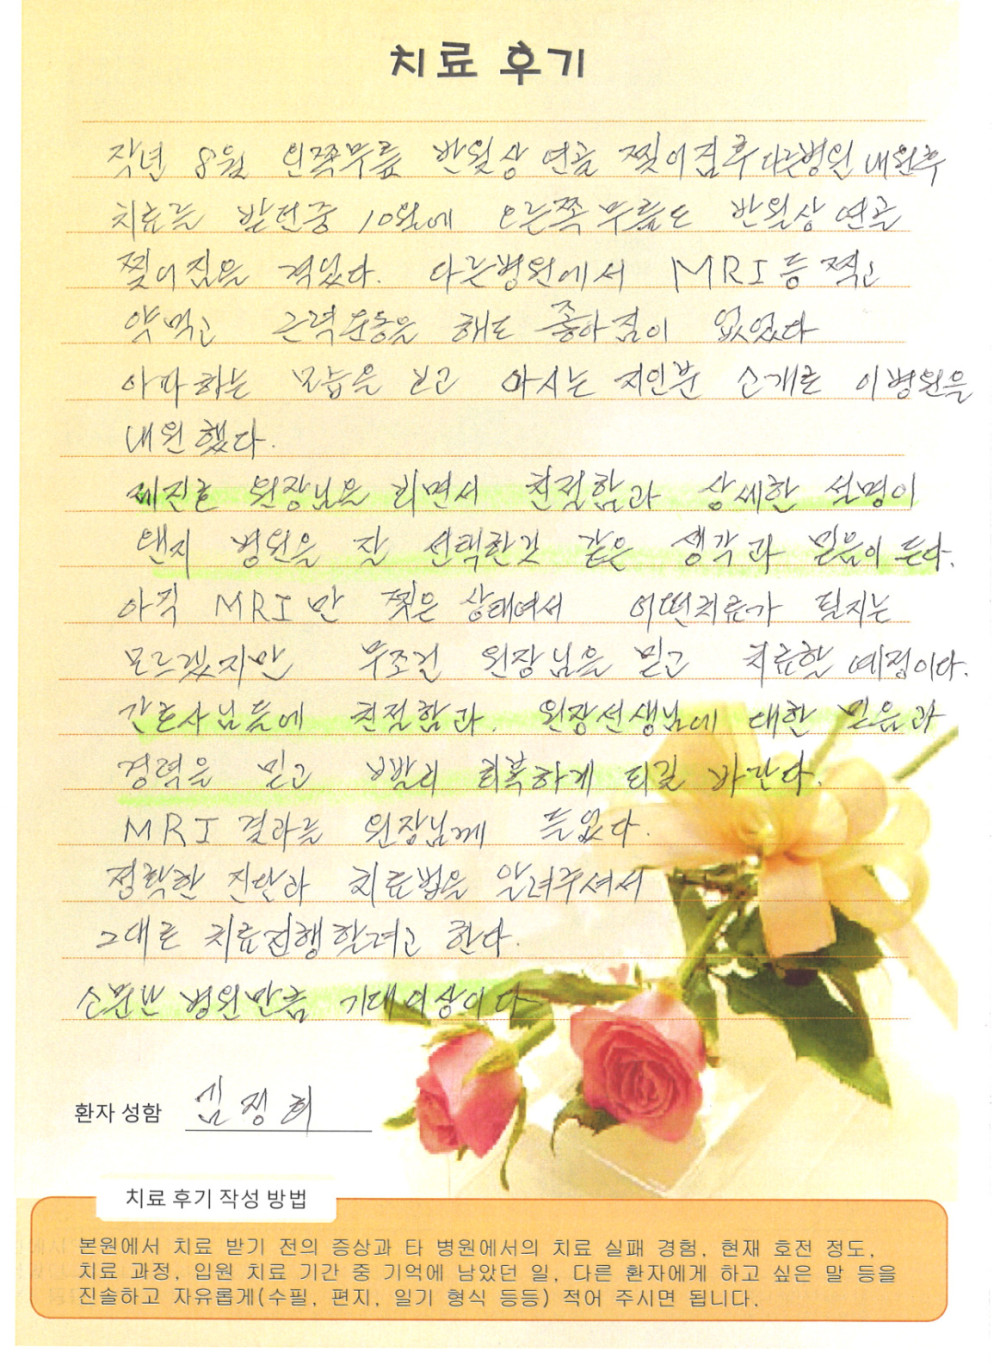 치료 후기
작년 8월 왼쪽무릎 반월상 연골 찢어짐후 다른병원 내원후
치료를 받던중 10월에 오른쪽 무릎도 반월상 연골
찢어짐을 겪었다. 다른병원에서 MRI등 찍고
약먹고 근력운동을 해도 좋아짐이 없었다
아파하는 모습을 보고 아시는 지인분 소개로 이병원을
내원했다.
제진호 원장님을 뵈면서 친절함과 상세한 설명이
왠지 병원을 잘 선택한것 같은 생각과 믿음이 든다.
아직 MRI만 찍은 상태여서 어떤치료가 될지는
모르겠지만 무조건 원장님을 믿고 치료할 예정이다.
간호사님들에 친절함과. 원장선생님에 대한 믿음과
경력을 믿고 빨리 회복하게 되길 바란다.
MRI 결과를 원장님께 들었다.
정확한 진단과 치료법을 알려주셔서
그대로 치료진행할려고 한다.
소문난 병원만큼 기대이상이다
환자 성함 김정희
치료 후기 작성 방법
본원에서 치료 받기 전의 증상과 타 병원에서의 치료 실패 경험, 현재 호전 정도,
치료 과정, 입원 치료 기간 중 기억에 남았던 일, 다른 환자에게 하고 싶은 말 등을
진솔하고 자유롭게(수필, 편지, 일기 형식 등등) 적어 주시면 됩니다.